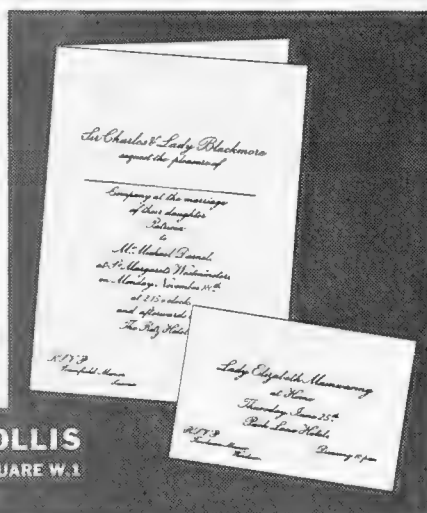 Sir Charles & Lady Blackmore
request the pleasure of
Company at the marriage
of their daughter
Patricia
to
Mr. Michael Darnel
at St. Margarets Westminster
on Monday, November 14th
at 2.15 o'clock
and afterwards
The Ritz Hotel
R.S.V.P.
Lady Elizabeth Mannering
at Home
Thursday June 25th
Park Lane Hotel
R.S.V.P.
Dancing 10 pm
OLLIS
UARE W.1